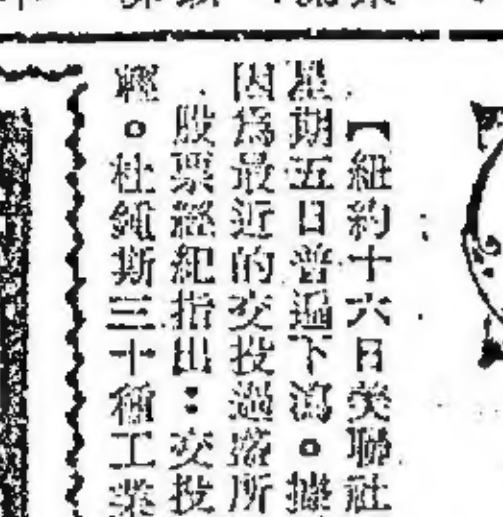 【紐約十六日美聯社
星期五日普遍下瀉。據
因為最近的交投過落所
股票經紀指出：交投
輕。杜鈍斯三十種工業